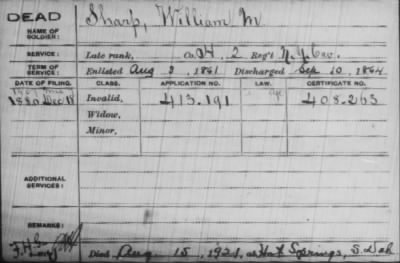 DEAD
NAME OF SOLDIER: Sharp, William M
SERVICE: Late rank, Co. H, 2 Reg't N. J. Cav.
TERM OF SERVICE: Enlisted Aug 3, 1861 Discharged Sep 10, 1864
DATE OF FILING. CLASS. APPLICATION NO. LAW. CERTIFICATE NO.
1880 Dec 18 Invalid, 413.191 408.263
Widow,
Minor,
ADDITIONAL SERVICES:
REMARKS:
Died Aug. 15, 1921, at Hot Springs, S. Dak